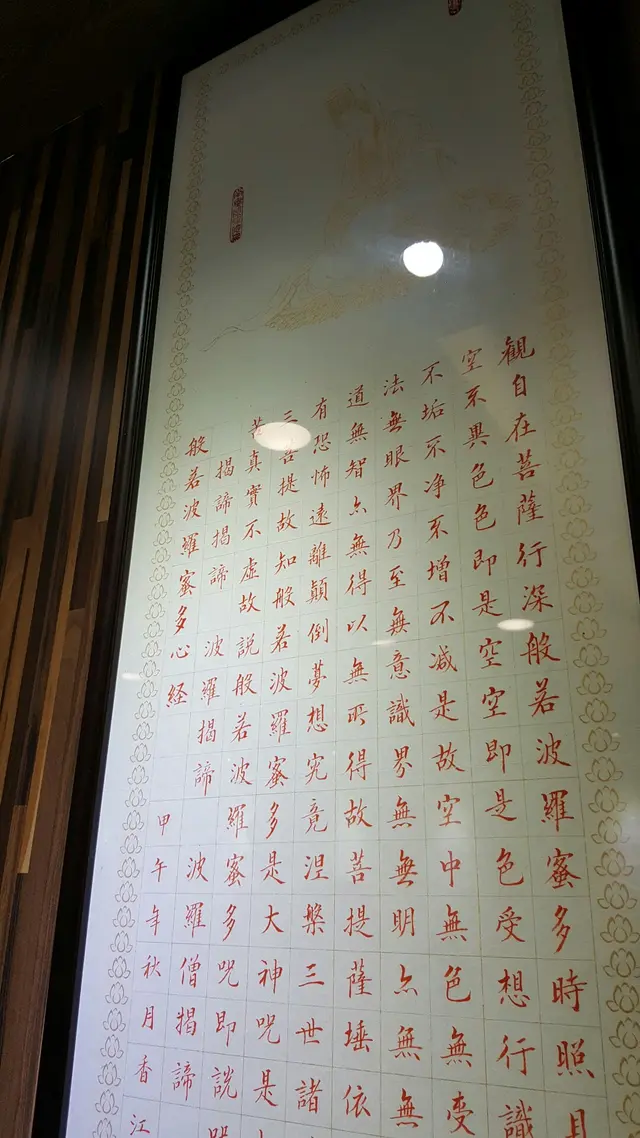 観自在菩薩行深般若波羅蜜多時照
空不異色色即是空空即是色受想行識
不垢不净不增不减是故空中無色無受
法無眼界乃至無意識界無無明亦無無
道無智亦無得以無所得故菩提薩埵依
有恐怖遠離顛倒夢想究竟涅槃三世諸
三菩提故知般若波羅蜜多是大神呪是
苦真實不虛故說般若波羅蜜多呪即說呪
揭諦揭諦 波羅揭諦 波羅僧揭諦
般若波羅蜜多心経 甲午年秋月香江